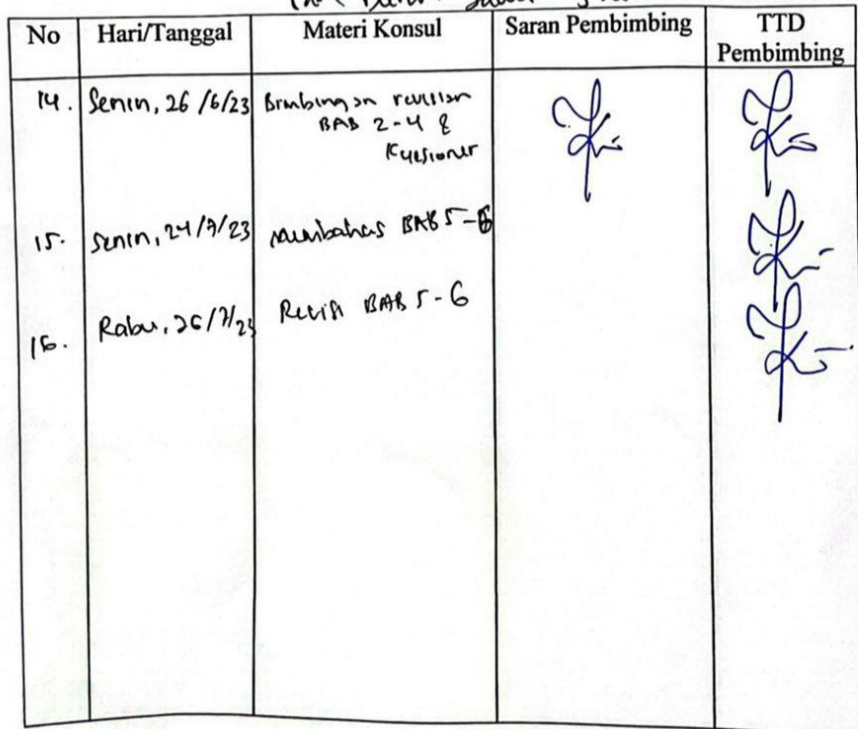 No Hari/Tanggal Materi Konsul Saran Pembimbing TTD Pembimbing
14. Senin, 26/6/23 Bimbingan revision
BAB 2-4 &
Kuesioner
15. Senin, 24/7/23 Membahas BAB 5-6
16. Rabu, 26/7/23 Revisi BAB 5-6